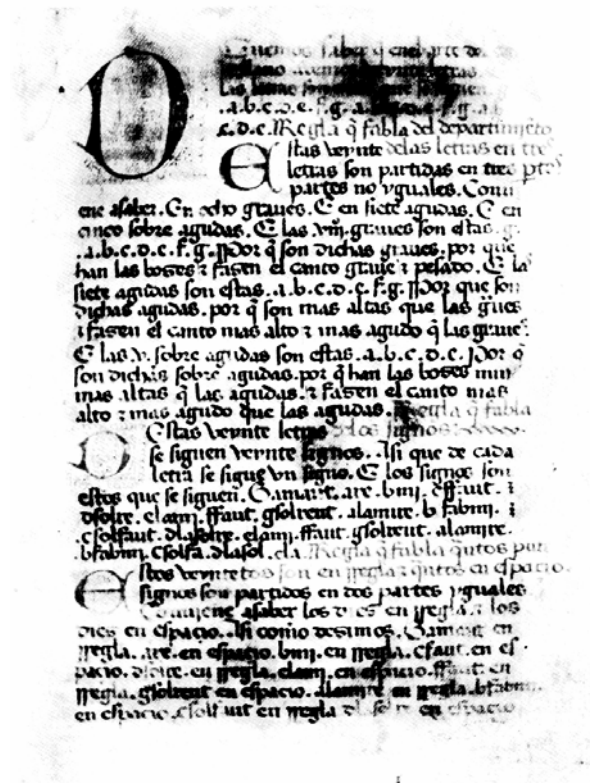 D
Quemos saber q̃ enel arte de
las
.a.b.c.d.e.f.g.a.b.c.d.e.f.g.a.b
c.d.e. Regla q̃ fabla del departimiẽto
Estas veynte delas letras en tres
letras son partidas en tres
partes no yguales. Convi
ene asaber. En ocho graues. E en siete agudas. E en
cinco sobre agudas. E las viij. graues son estas. g.
.a.b.c.d.e.f.g. Por q̃ son dichas graues. por que
han las boses ⁊ fasen el canto graue ⁊ pesado. E las
siete agudas son estas .a.b.c.d.e.f.g. Por que son
dichas agudas. por q̃ son mas altas que las g̃ues
⁊ fasen el canto mas alto ⁊ mas agudo q̃ las graues
E las v. sobre agudas son estas .a.b.c.d.e. Por q̃
son dichas sobre agudas. por q̃ han las boses muy
mas altas q̃ las agudas. ⁊ fasen el canto mas
alto ⁊ mas agudo que las agudas. Regla q̃ fabla
Destas veynte letras delos signos
se siguen veynte signos. Asi que de cada
letra se sigue vn signo. E los signos son
estos que se siguen. Gamaut. are. bmi. cffaut. ⁊
dsolre. elami. ffaut. gsolreut. alamire. b fabmi.
csolfaut. dlasolre. elami. ffaut. gsolreut. alamire.
bfabmi. csolfa. dlasol. ela. Regla q̃ fabla q̃ntos
Estos veynte son en rregla ⁊ q̃ntos en espacio.
signos son partidos en dos partes yguales
Conuiene asaber los dies en rregla. ⁊ los
dies en espacio. Asi como desimos. Gamaut en
rregla. are. en espacio. bmi. en rregla. cfaut. en es
pacio. dsolre. en rregla. elami. en espacio. ffaut. en
rregla. gsolreut en espacio. alamire en rregla. bfabmi.
en espacio. csolfaut en rregla dlasolre en espacio